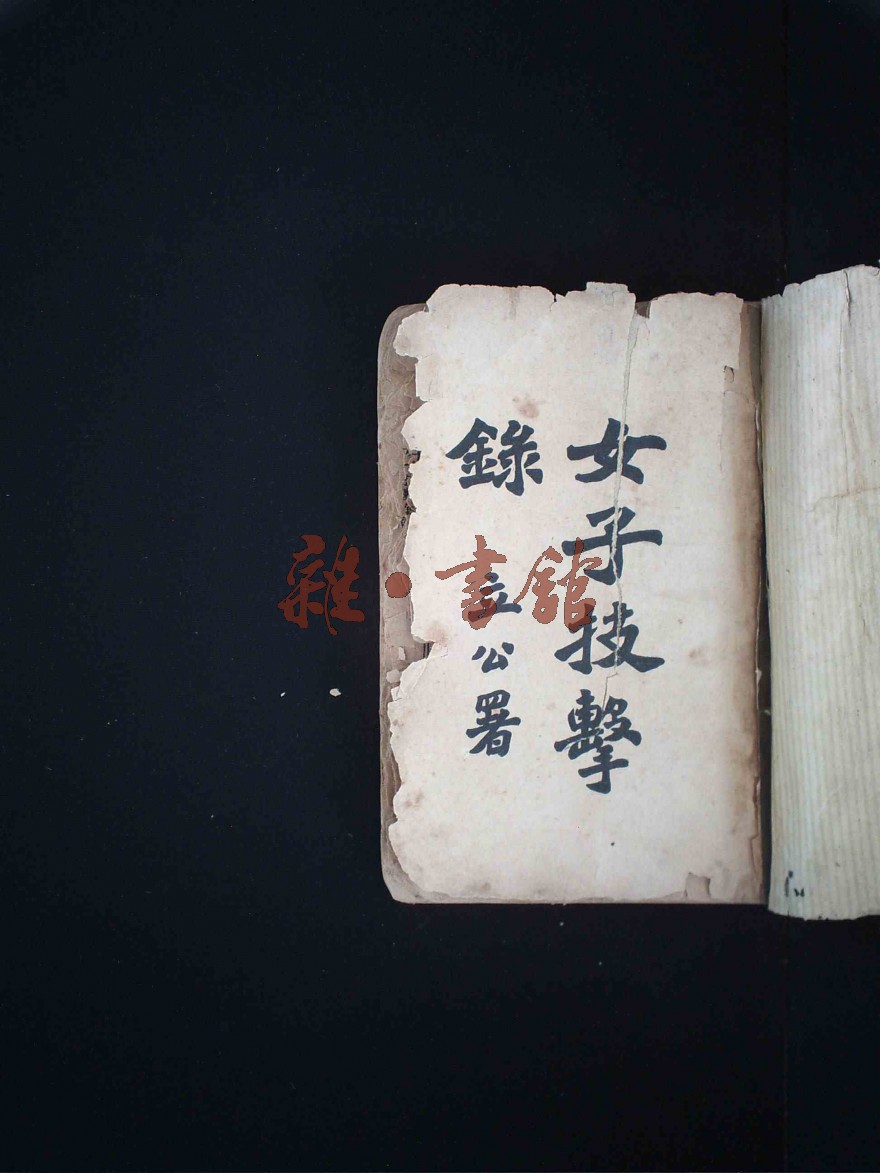 女子技擊
錄
公署
雜·書館